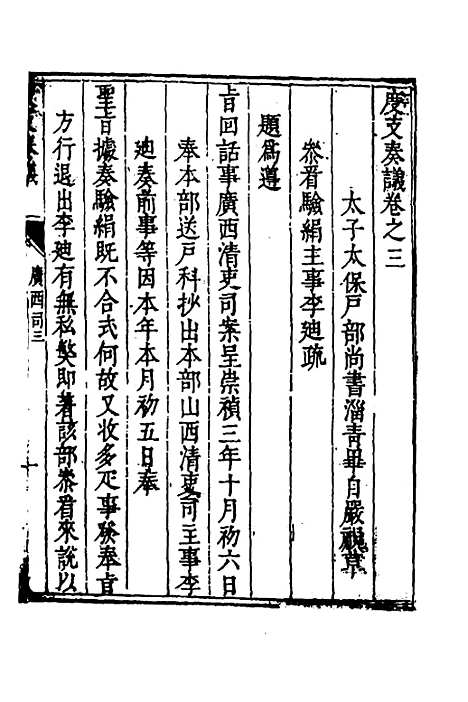 度支奏議卷之三
太子太保戶部尚書淄青畢自嚴視草
叅看驗絹主事李廸疏
題爲遵
旨回話事廣西清吏司案呈崇禎三年十月初六日
奉本部送戶科抄出本部山西清吏司主事李
廸奏前事等因本年本月初五日奉
聖旨據奏驗絹旣不合式何故又收多疋事發奉旨
方行退出李廸有無私獘即著該部叅看來說以
廣西司三